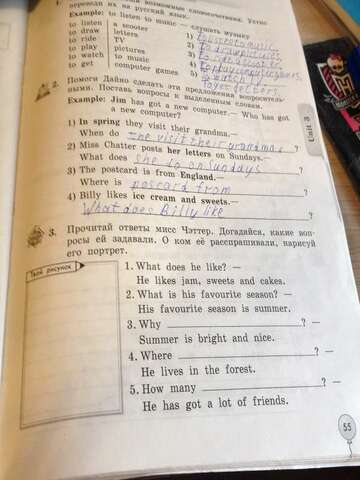 переводи их на русский язык.
Example: to listen to music — слушать музыку
to listen a scooter
to draw letters
to ride TV
to play pictures
to watch to music
to get computer games
1)
2)
3)
4)
5)
2. Помоги Дайно сделать эти предложения вопроситель-
ными. Поставь вопросы к выделенным словам.
Example: Jim has got a new computer. — Who has got
a new computer?
1) In spring they visit their grandma. —
When do the visit their grandma ?
2) Miss Chatter posts her letters on Sundays. —
What does she do on sundays ?
3) The postcard is from England. —
Where is poscard from ?
4) Billy likes ice cream and sweets. —
What does Billy like ?
Unit 3
3. Прочитай ответы мисс Чэттер. Догадайся, какие воп-
росы ей задавали. О ком её расспрашивали, нарисуй
его портрет.
Твой рисунок
1. What does he like? —
He likes jam, sweets and cakes.
2. What is his favourite season? —
His favourite season is summer.
3. Why ? —
Summer is bright and nice.
4. Where ? —
He lives in the forest.
5. How many ? —
He has got a lot of friends.
55